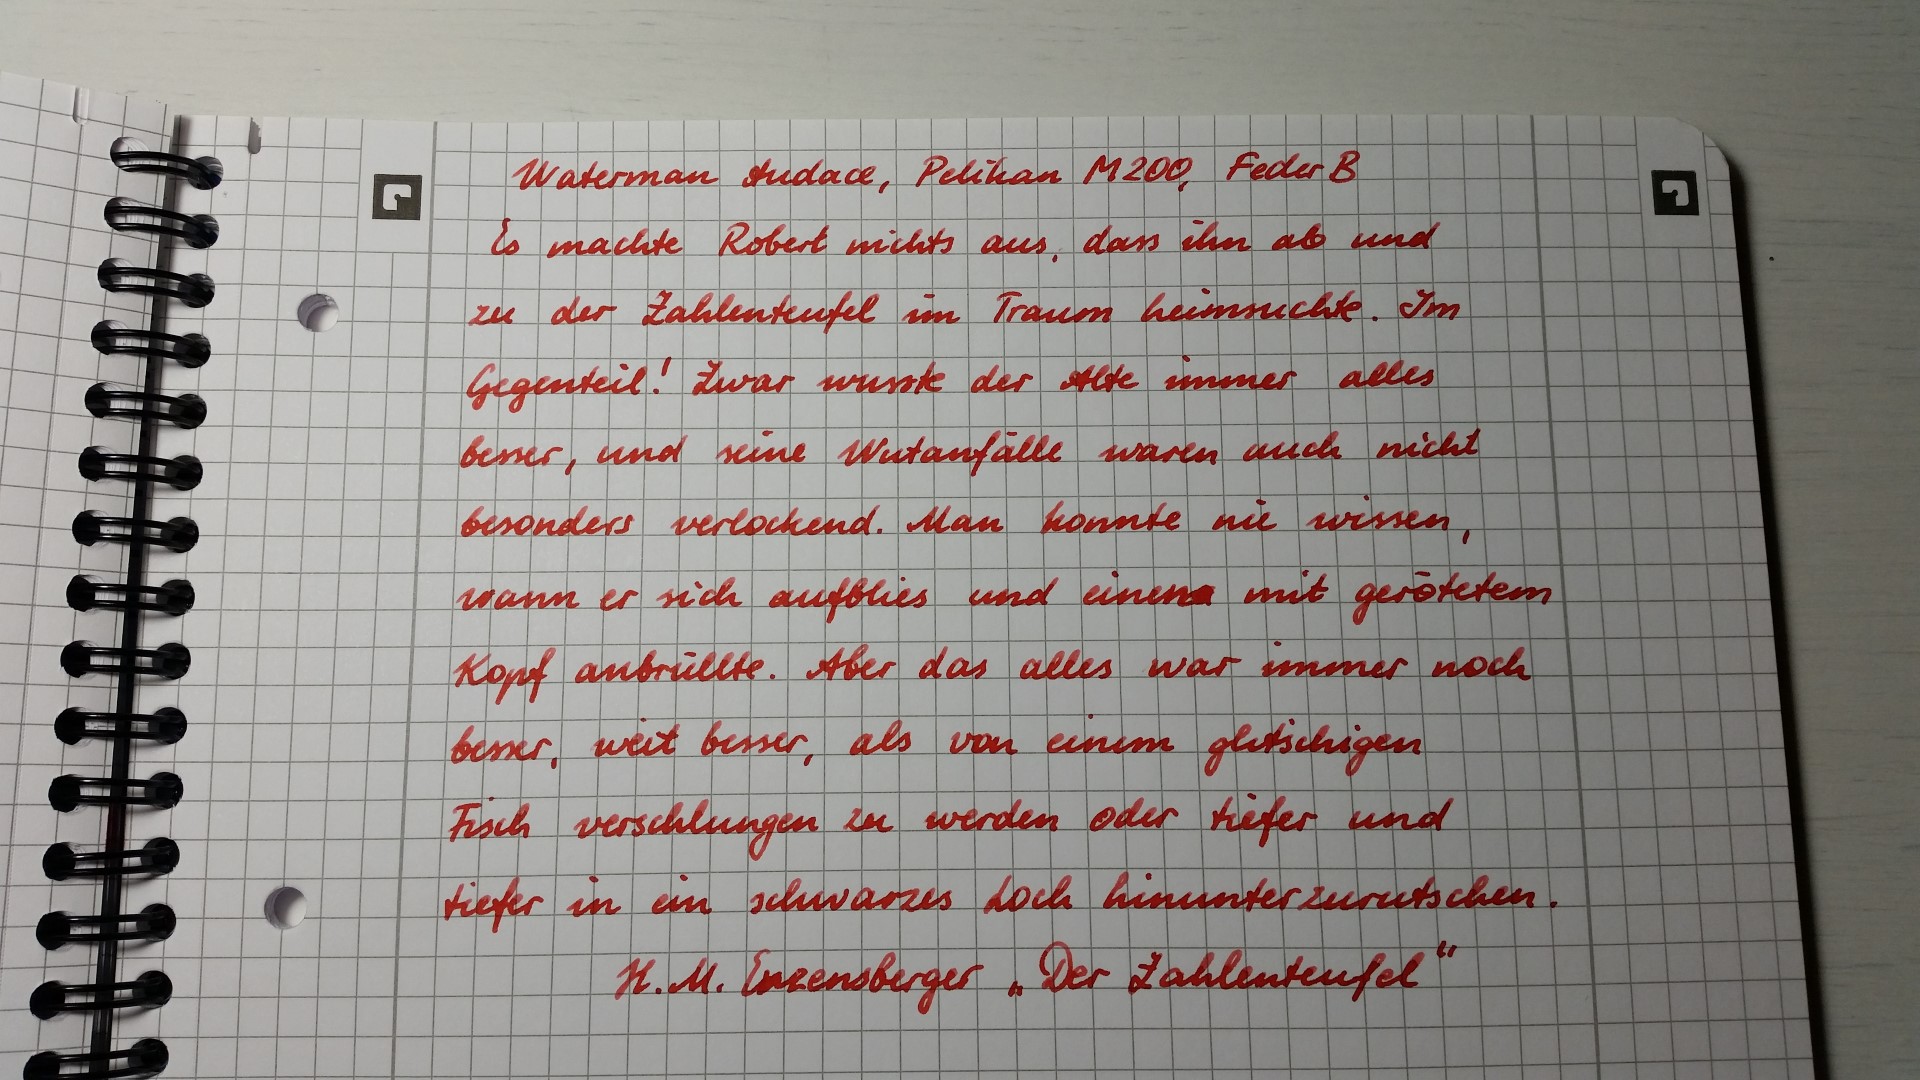 Waterman Audace, Pelikan M200, Feder B
Es machte Robert nichts aus, dass ihn ab und
zu der Zahlenteufel im Traum heimsuchte. Im
Gegenteil! Zwar wusste der Alte immer alles
besser, und seine Wutanfälle waren auch nicht
besonders verlockend. Man konnte nie wissen,
wann er sich aufblies und einen mit gerötetem
Kopf anbrüllte. Aber das alles war immer noch
besser, weit besser, als von einem glitschigen
Fisch verschlungen zu werden oder tiefer und
tiefer in ein schwarzes Loch hinunterzurutschen.
H. M. Enzensberger „Der Zahlenteufel“